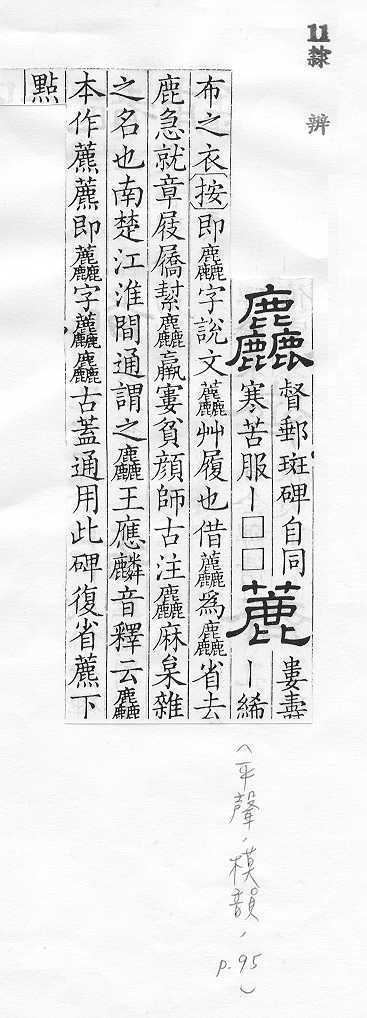 11隸辨
麤
督郵斑碑自同
寒苦服ー□□
蔍
婁壽
ー絺
布之衣按即麤字說文𧆓艸履也借𧆓爲麤省去
鹿急就章屐屩絜麤羸窶貧顏師古注麤麻枲雜
之名也南楚江淮間通謂之麤王應麟音釋云麤
本作蔍蔍即𧆓字𧆓麤古蓋通用此碑復省蔍下
點
（平聲、模韻、p.95）